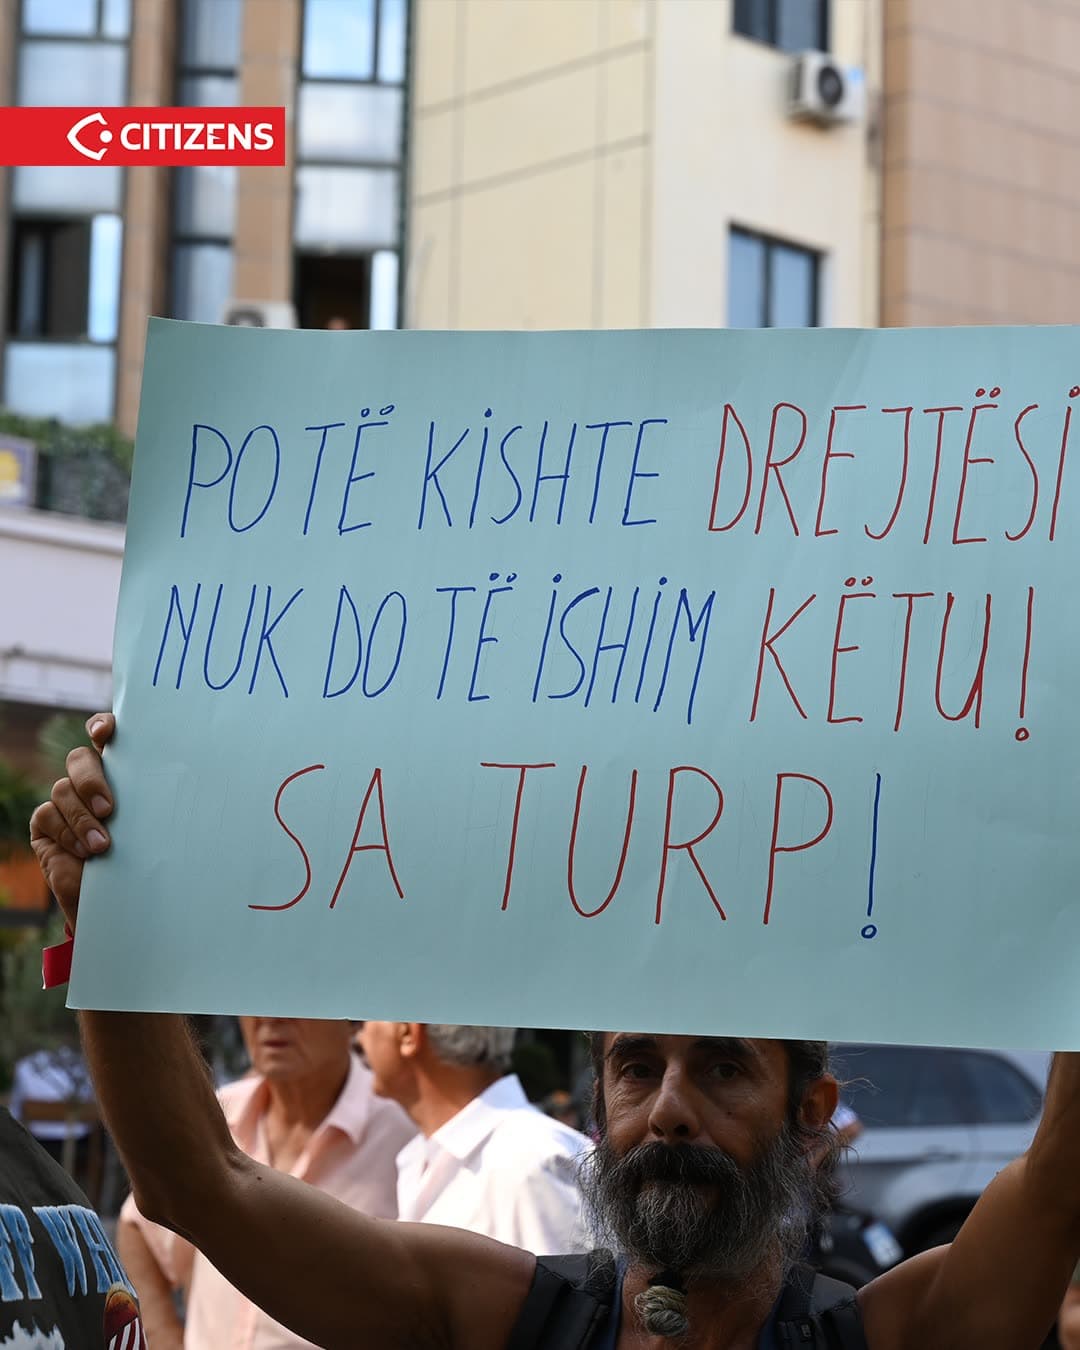 CITIZENS
PO TË KISHTE DREJTËSI
NUK DO TË ISHIM KËTU!
SA TURP!